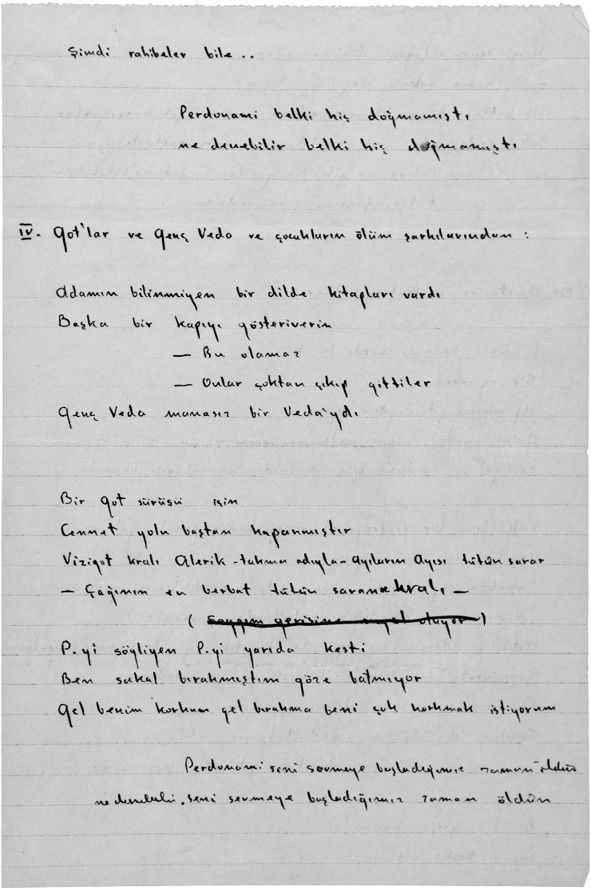 Şimdi rahibeler bile..
Perdonami belki hiç doğmamıştı
ne denebilir belki hiç doğmamıştı
IV. Got'lar ve Genç Veda ve çocukların ölüm şarkılarından :
Adamın bilinmiyen bir dilde kitapları vardı
Başka bir kapıyı gösteriverin
— Bu olamaz
— Onlar çoktan çıkıp gittiler
Genç Veda manasız bir Veda'ydı
Bir got sürüsü için
Cennet yolu baştan kapanmıştır
Vizigot kralı Alerik -takma adıyla- Ayıların Ayısı tütün sarar
— Çağının en berbat tütün saran kralı —
( )
P.yi söyliyen P.yi yarıda kesti
Ben sakal bırakmıştım göze batmıyor
Gel benim korkum gel bırakma beni çok korkmak istiyorum
Perdonami seni sevmeye başladığımız zaman öldün
ne denebilir, seni sevmeye başladığımız zaman öldün